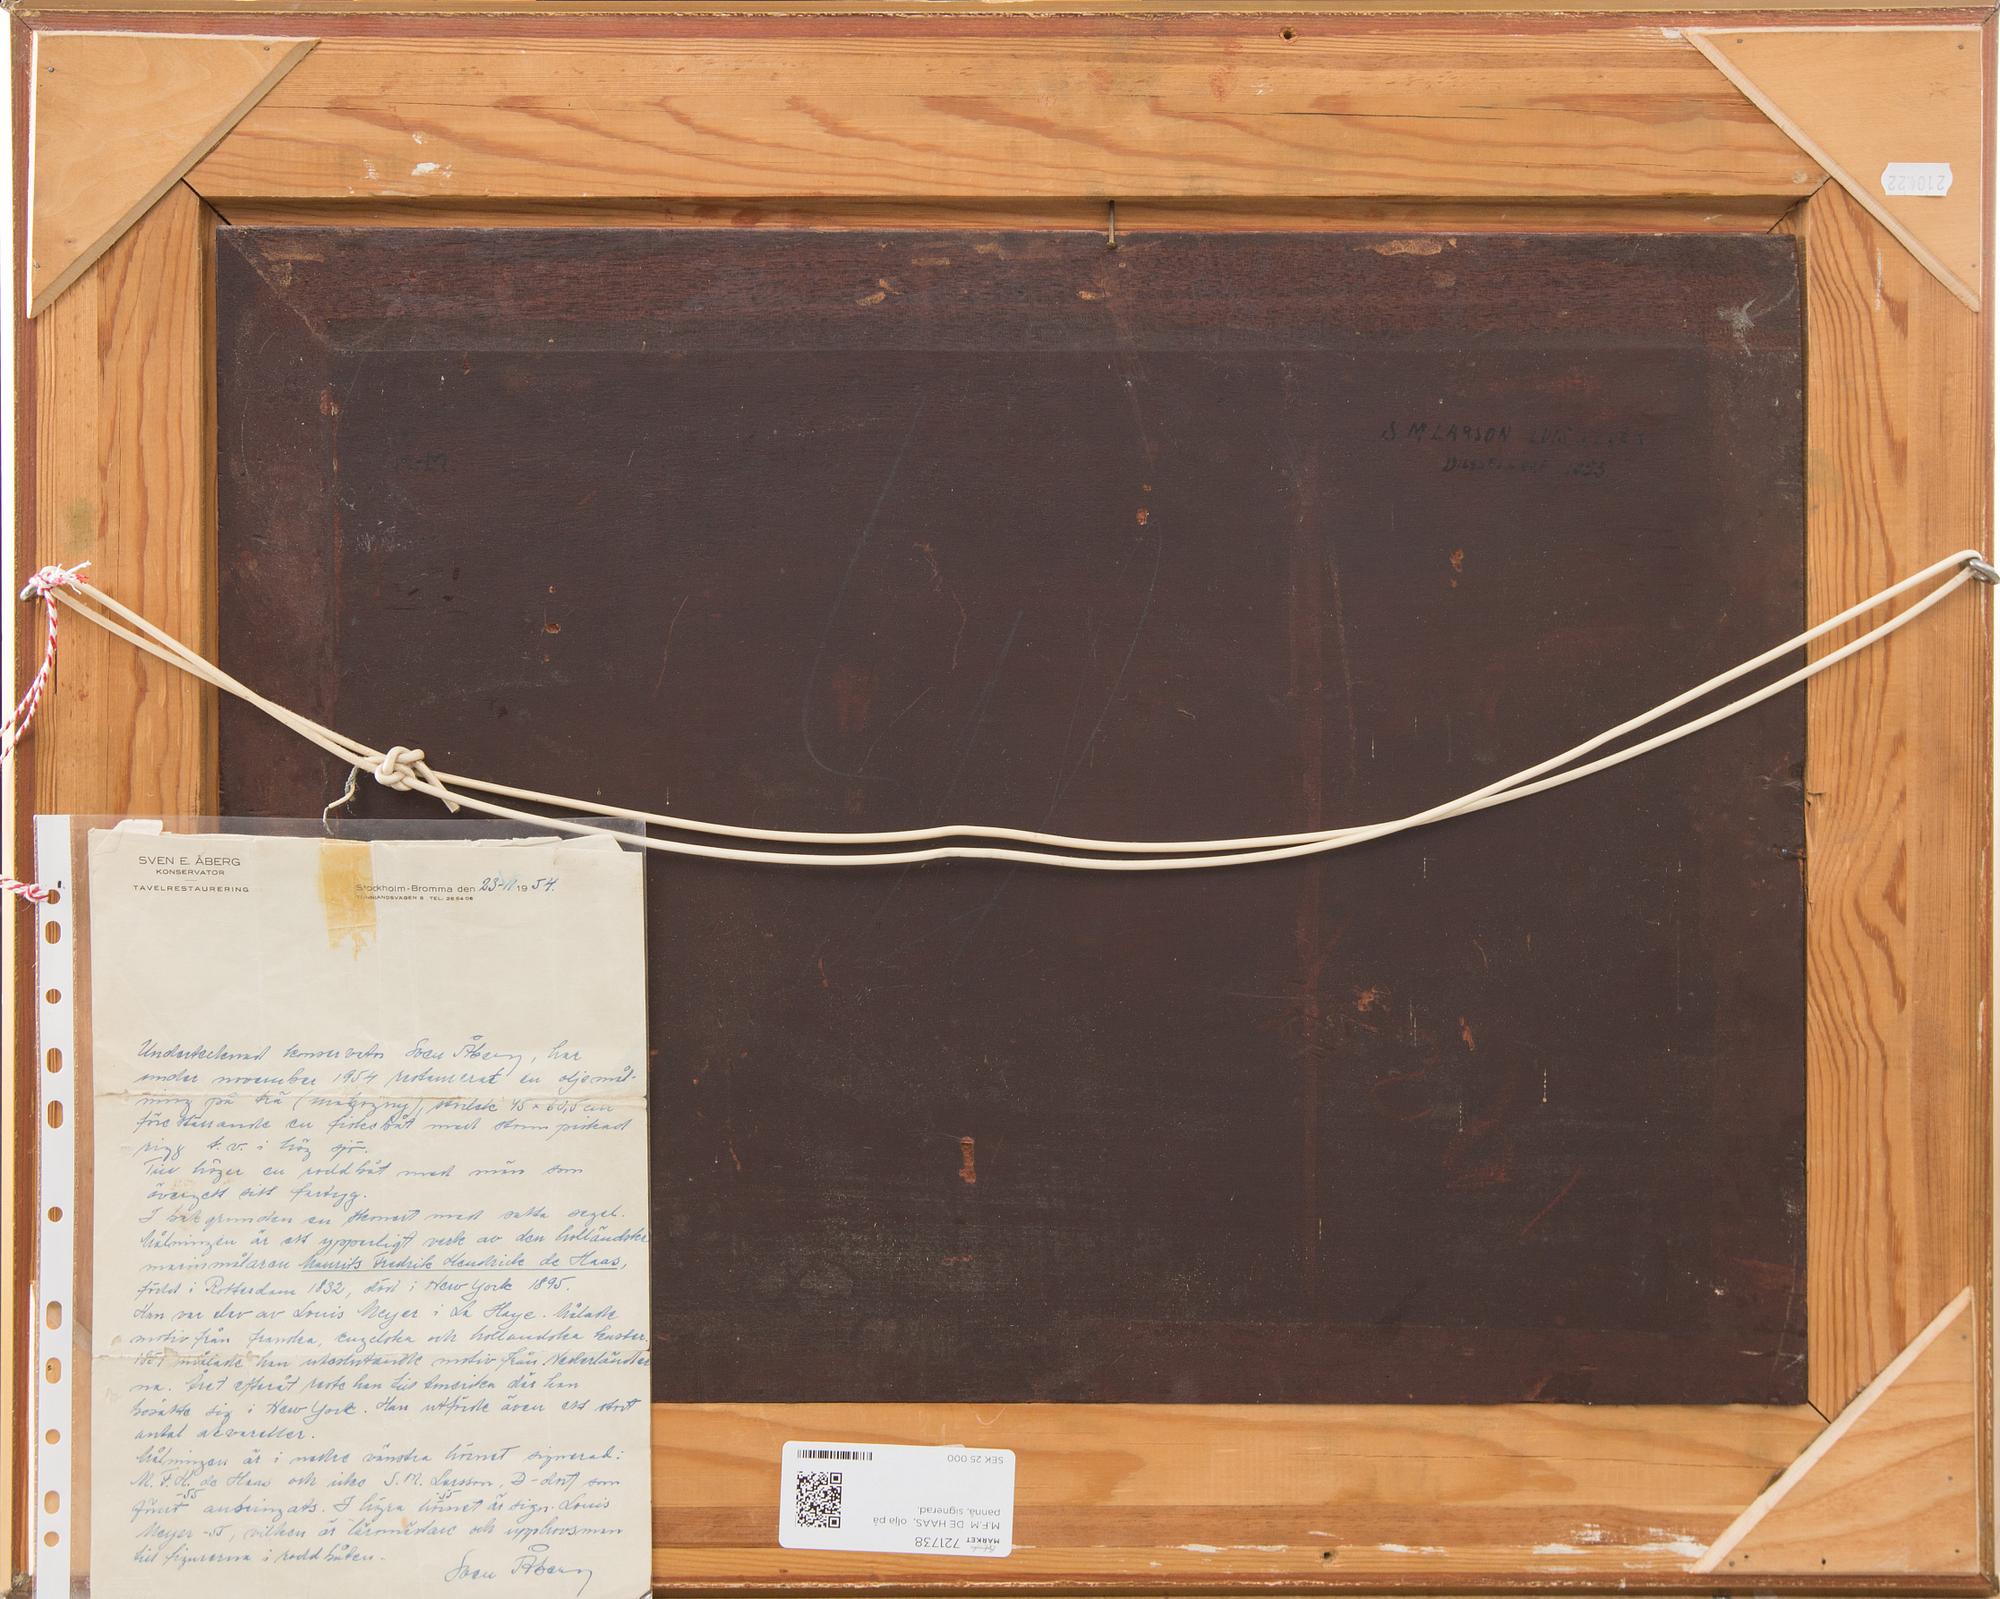 210422
S M LARSON
SVEN E. ÅBERG
KONSERVATOR
TAVELRESTAURERING
Stockholm-Bromma den 23-11 1954.
TEL. 26 54 06
Undertecknad konservator Sven Åberg, har
under november 1954 restaurerat en oljemål-
ning på trä (mahogny), storlek 45 × 60,5 cm
föreställande en fiskebåt med storm piskad
rigg t.v. i hög sjö.
Till höger en roddbåt med män som
övergett sitt fartyg.
I bakgrunden en skonert med satta segel.
Målningen är ett ypperligt verk av den holländske
marinmålaren Maurits Fredrik Hendrick de Haas,
född i Rotterdam 1832, död i New York 1895.
Han var elev av Louis Meyer i La Haye. Målade
motiv från franska, engelska och holländska kuster.
målade han uteslutande motiv från Nederländer
na. Året efteråt reste han till Amerika där han
bosatte sig i New York. Han utförde även ett stort
antal akvareller.
Målningen är i nedre vänstra hörnet signerad:
M. F. H. de Haas -55 och icke S. M. Larsson, D-dorf -55 som
förut ansetts. I högra hörnet är sign. Louis
Meyer -55, vilken är läromästare och upphovsman
till figurerna i roddbåten.
Sven Åberg
MARKET 721738
M.F.M. DE HAAS, olja på
pannå, signerad.
SEK 25 000